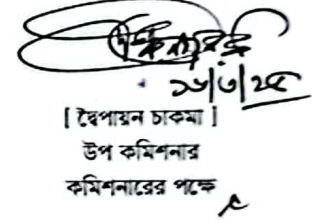 ১৬/৩/২৫
[ দ্বৈপায়ন চাকমা ]
উপ কমিশনার
কমিশনারের পক্ষে